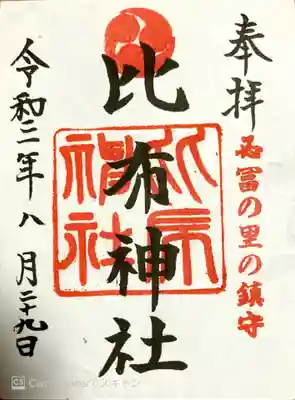 奉拝
冨の里の鎮守
比布神社
比布
神社
令和二年八月二十九日
CS CamScannerでスキャン